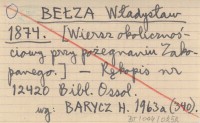 BEŁZA Władysław
1874. [Wiersz okoliczno-
ściowy przy pożegnaniu Zako-
panego.] — Rękopis nr
12420 Bibl. Ossol.
wg: BARYCZ H. 1963a (340).